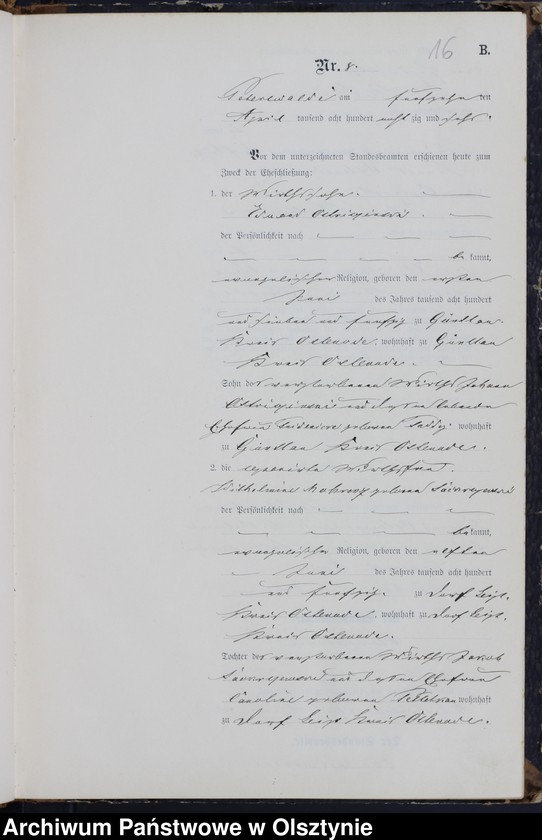 16
B.
Nr. 8.
am fünfzehnten
April tausend acht hundert achtzig und sechs.
Vor dem unterzeichneten Standesbeamten erschienen heute zum
Zweck der Eheschließung:
1. der Wirthssohn
Eduard
der Persönlichkeit nach
bekannt,
evangelischer Religion, geboren den ersten
Juni des Jahres tausend acht hundert
und sieben und fünfzig zu
Kreis Osterode, wohnhaft zu
Kreis Osterode.
Sohn des verstorbenen Wirths Johann
und dessen lebenden
Ehefrau geborenen wohnhaft
zu Kreis Osterode.
2. die separirte Wirthsfrau
Wilhelmine geborene
der Persönlichkeit nach
bekannt,
evangelischer Religion, geboren den elften
Juni des Jahres tausend acht hundert
und fünfzig. zu Dorf
Kreis Osterode, wohnhaft zu Dorf
Kreis Osterode.
Tochter des verstorbenen Wirths Jakob
und dessen Ehefrau
Caroline geborenen wohnhaft
zu Dorf Kreis Osterode.
Archiwum Państwowe w Olsztynie